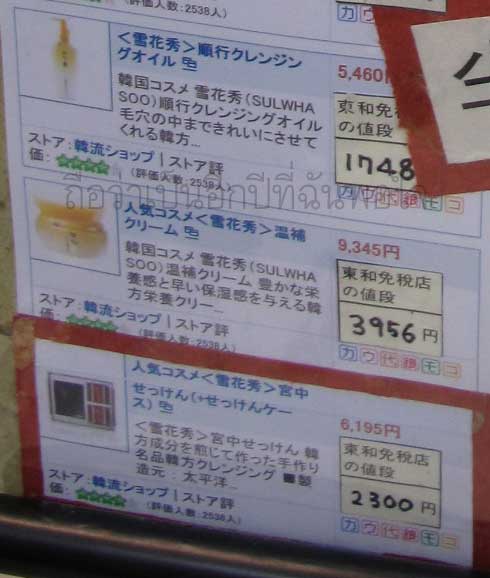 (評価人数:2538人)
カ ウ
<雪花秀>順行クレンジン
グオイル
5,460円
韓国コスメ 雪花秀(SULWHA
SOO)順行クレンジングオイル
毛穴の中まできれいにさせて
くれる韓方...
東和免税店
の値段
1748
ストア:韓流ショップ | ストア評
価: (評価人数:2538人)
カ ウ 代 銀 モ コ
人気コスメ<雪花秀>温補
クリーム
9,345円
韓国コスメ 雪花秀(SULWHA
SOO)温補クリーム 豊かな栄
養感と早い保湿感を与える韓
方栄養クリー...
東和免税店
の値段
3956 円
ストア:韓流ショップ | ストア評
価: (評価人数:2538人)
カ ウ 代 銀 モ コ
人気コスメ<雪花秀>宮中
せっけん(+せっけんケー
ス)
6,195円
<雪花秀>宮中せっけん 韓
方成分を煎じて作った手作り
名品韓方クレンジング ■製
造元 : 太平洋...
東和免税店
の値段
2300 円
ストア:韓流ショップ | ストア評
価: (評価人数:2538人)
カ ウ 代 銀 モ コ